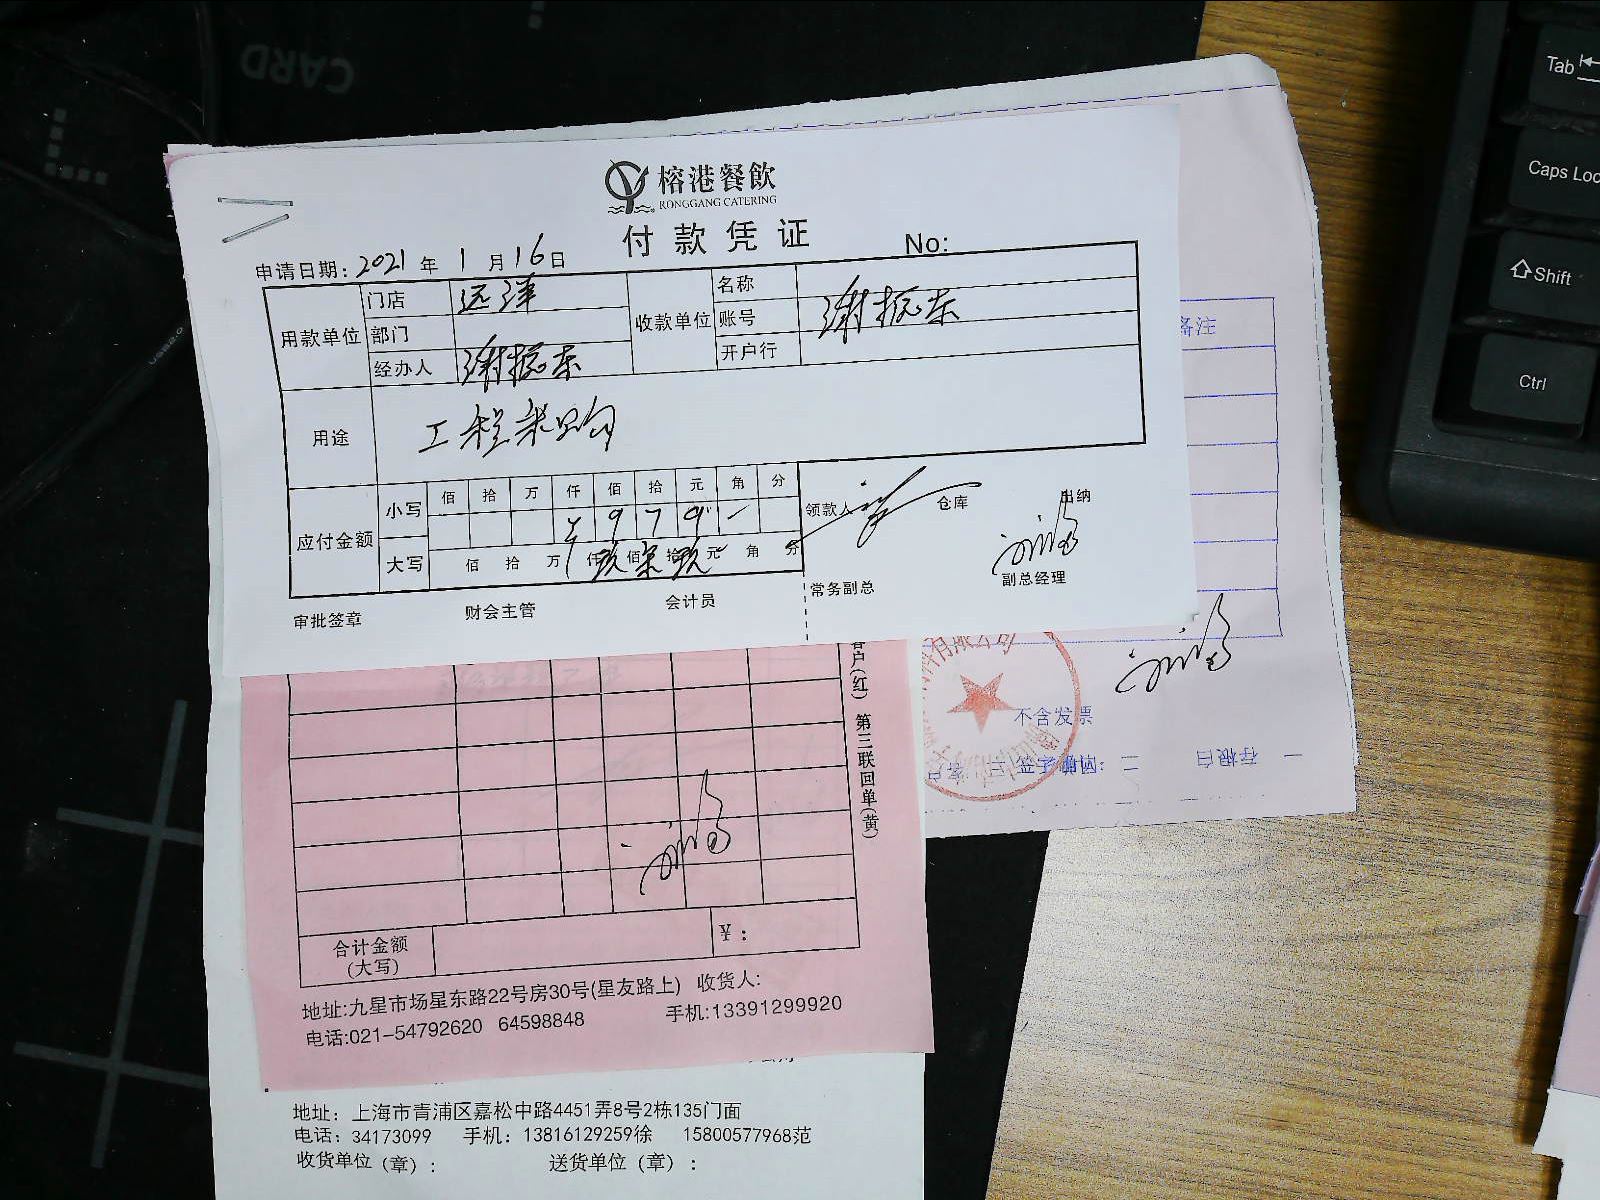 CARD
榕港餐飲
RONGGANG CATERING
付款凭证
No:
申请日期: 2021 年 1 月 16 日
用款单位 门店 远洋 收款单位 名称
部门 账号 谢振东
经办人 谢振东 开户行
用途 工程采购
应付金额 小写 佰 拾 万 仟 佰 拾 元 角 分
¥ 9 7 9 -
大写 佰 拾 万 仟 玖 佰 柒 拾 玖 元 角 分
领款人 仓库 出纳
审批签章 财会主管 会计员 常务副总 副总经理
备注
不含发票
存根白
客户(红) 第三联回单(黄)
合计金额
(大写)
¥:
地址:九星市场星东路22号房30号(星友路上) 收货人:
电话:021-54792620 64598848 手机:13391299920
地址: 上海市青浦区嘉松中路4451弄8号2栋135门面
电话: 34173099 手机: 13816129259徐 15800577968范
收货单位 (章) : 送货单位 (章) :
Tab
Caps Loc
Shift
Ctrl